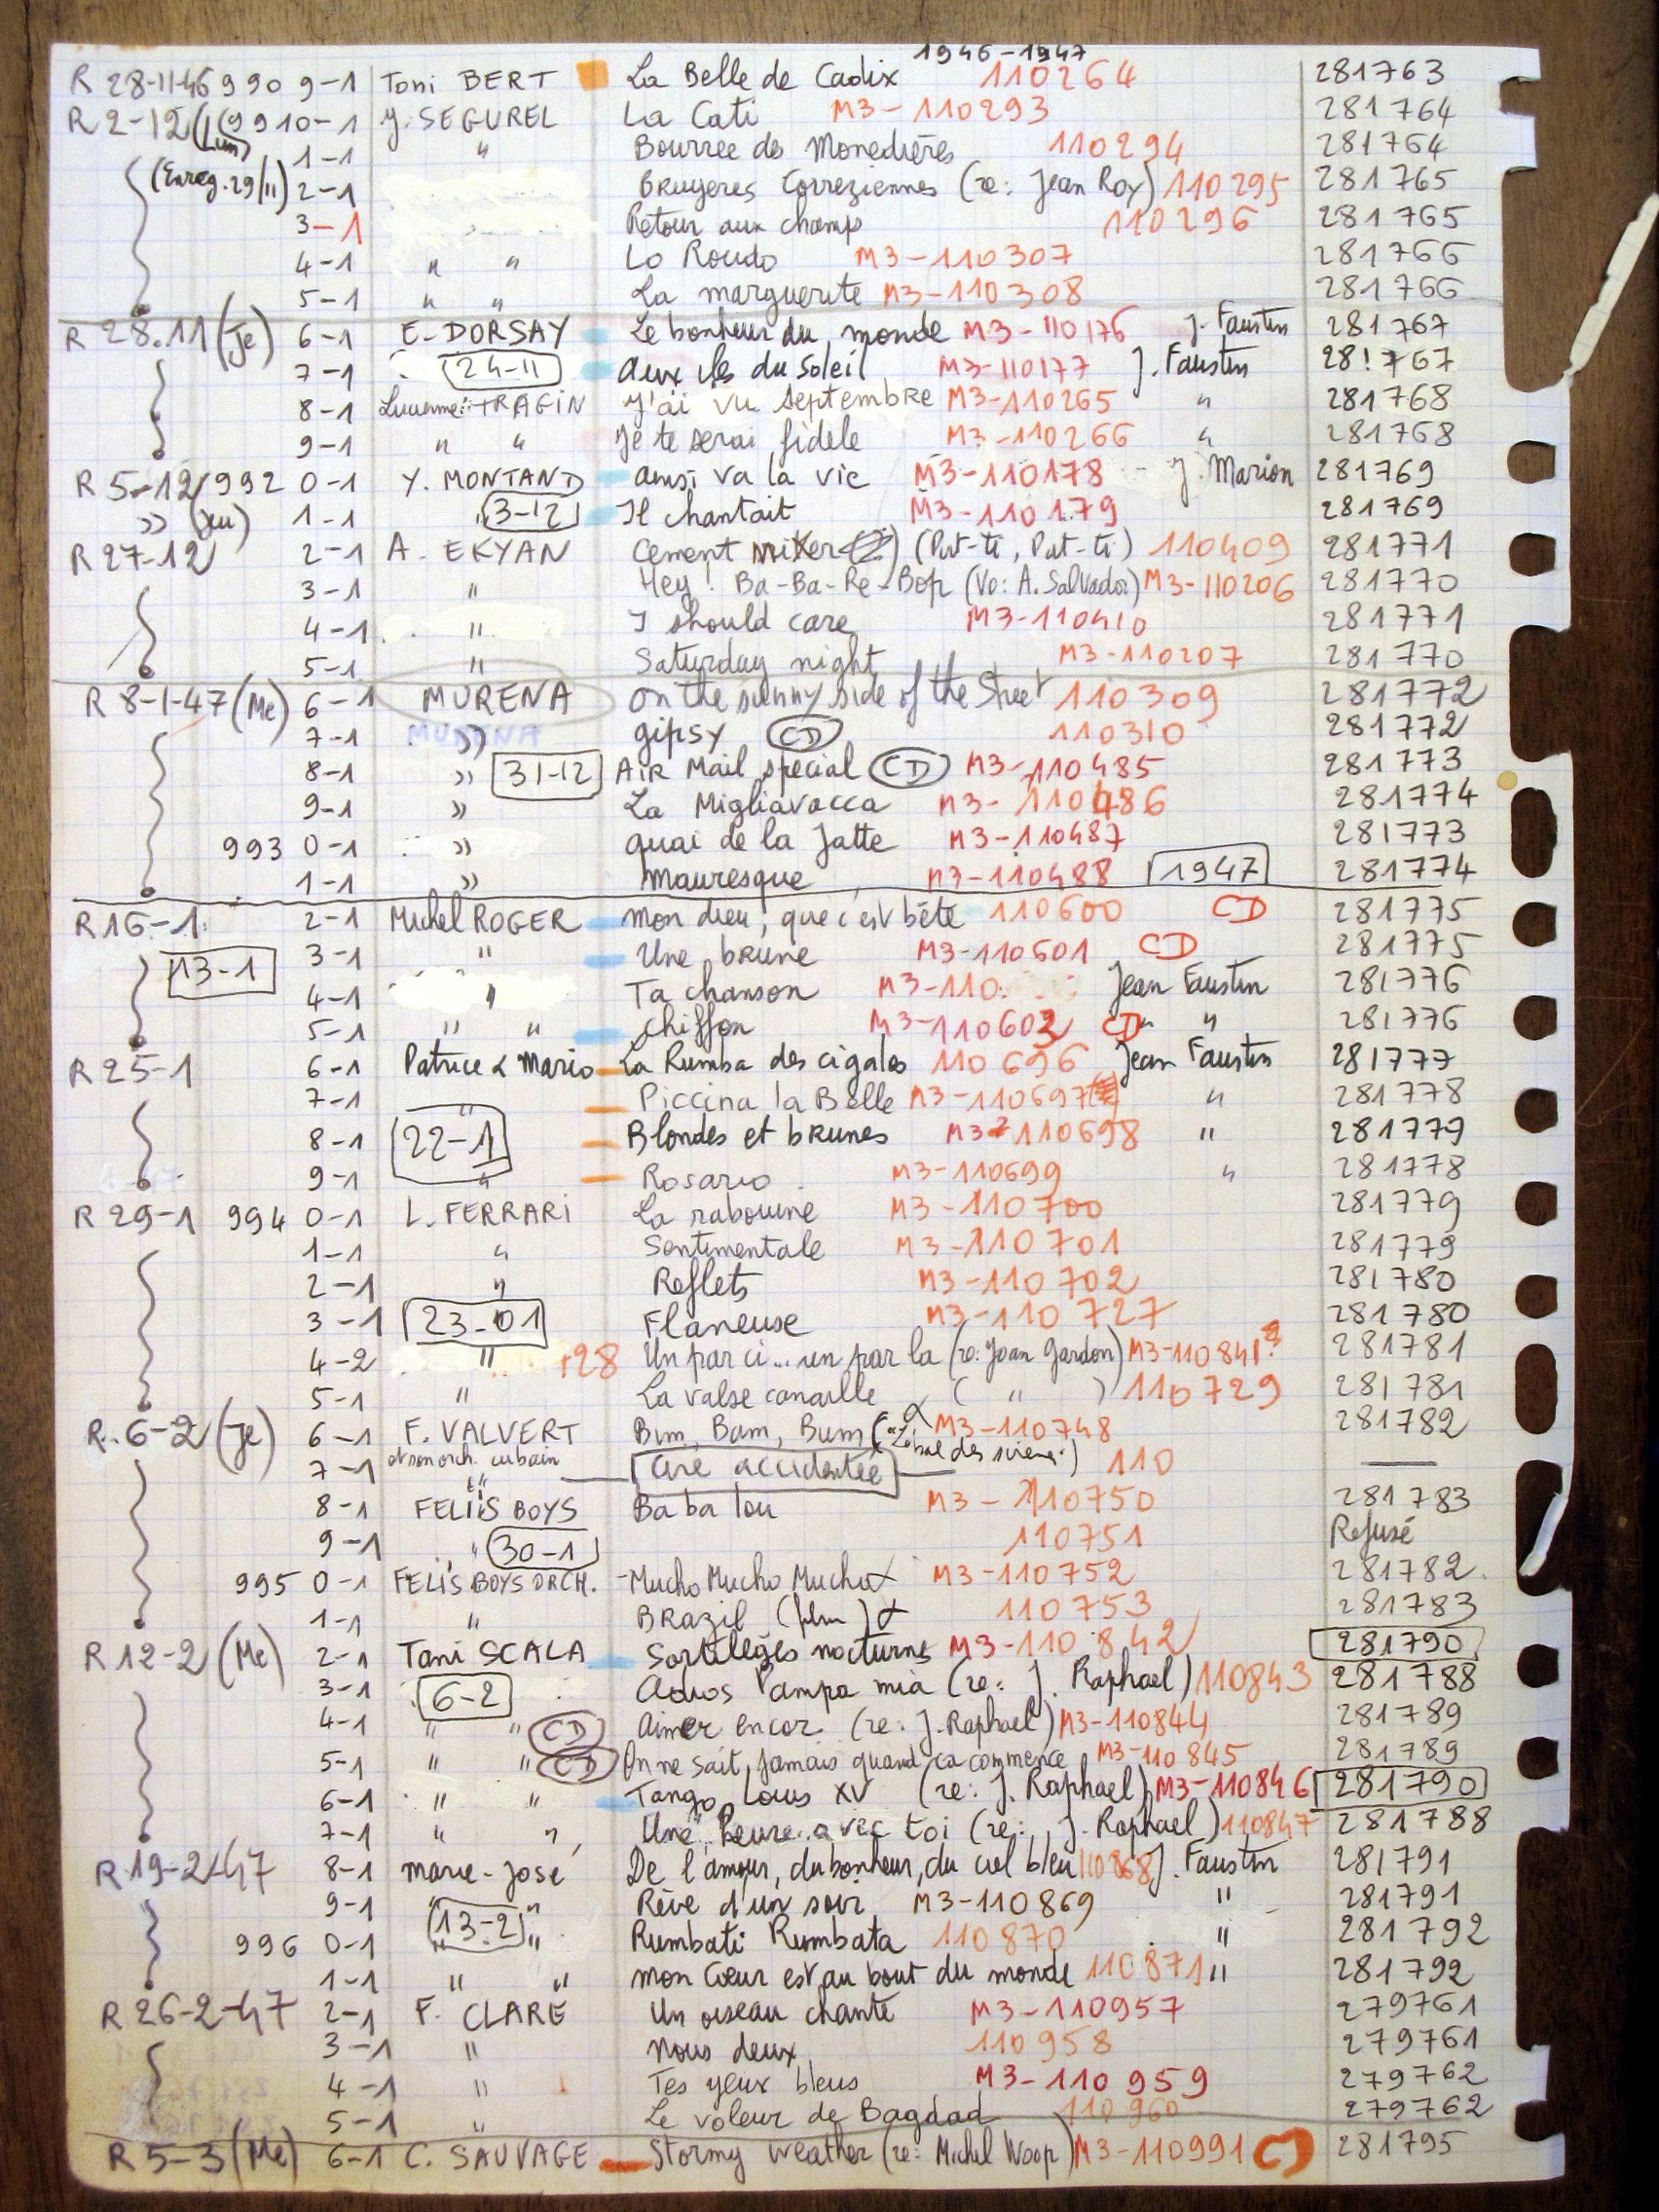 1946-1947
R 28-11-46 990 9-1 Toni BERT La Belle de Cadix 110264 281763
R 2-12 (Lun) 9910-1 J. SEGUREL La Cati M3-110293 281764
1-1 " Bourrée des Monedières 110294 281764
(Enreg. 29/11) 2-1 Bruyeres Correziennes (re: Jean Roy) 110295 281765
3-1 Retour aux champs 110296 281765
4-1 " " Lo Roudo M3-110307 281766
5-1 " " La marguerite M3-110308 281766
R 28.11 (Je) 6-1 E. DORSAY Le bonheur du monde M3-110176 J. Faustin 281767
7-1 24-11 Aux iles du Soleil M3-110177 J. Faustin 281767
8-1 Lucienne TRAGIN J'ai vu septembre M3-110265 " 281768
9-1 " " Je te serai fidele M3-110266 " 281768
R 5-12 992 0-1 Y. MONTAND Ainsi va la vie M3-110178 J. Marion 281769
» (Jeu) 1-1 3-12 Il chantait M3-110179 281769
R 27-12 2-1 A. EKYAN Cement mixer (Put-ti, Put-ti) 110409 281771
3-1 " Hey! Ba-Ba-Re-Bop (Vo: A. Salvador) M3-110206 281770
4-1 " I should care M3-110410 281771
5-1 " Saturday night M3-110207 281770
R 8-1-47 (Me) 6-1 MURENA On the sunny side of the Street 110309 281772
7-1 » gipsy CD 110310 281772
8-1 » 31-12 AIR Mail special CD M3-110485 281773
9-1 » La Migliavacca M3-110486 281774
993 0-1 » quai de la Jatte M3-110487 281773
1-1 » Mauresque M3-110488 1947 281774
R 16-1 2-1 Michel ROGER Mon dieu, que c'est bête 110600 CD 281775
13-1 3-1 " Une brune M3-110601 CD 281775
4-1 " Ta chanson M3-110 Jean Faustin 281776
5-1 " " Chiffon M3-110602 CD " " 281776
R 25-1 6-1 Patrice & Mario La Rumba des cigales 110696 Jean Faustin 281777
7-1 " Piccina la Belle M3-110697 " 281778
8-1 22-1 Blondes et brunes M3-110698 " 281779
9-1 " Rosario M3-110699 " 281778
R 29-1 994 0-1 L. FERRARI La rabouine M3-110700 281779
1-1 " Sentimentale M3-110701 281779
2-1 " Reflets M3-110702 281780
3-1 23-01 Flaneuse M3-110727 281780
4-2 " +28 Un par ci... un par la (re: Joan Gardon) M3-110841? 281781
5-1 " La valse canaille ( " ) 110729 281781
R. 6-2 (Je) 6-1 F. VALVERT Bim, Bam, Bum ("Le bal des sirenes") M3-110748 281782
7-1 et son orch. cubain Cire accidentée 110 —
8-1 FELI'S BOYS Ba ba lou M3-110750 281783
9-1 " 30-1 110751 Refusé
995 0-1 FELIS BOYS ORCH. -Mucho Mucho Mucho M3-110752 281782.
1-1 " BRAZIL (film) 110753 281783
R 12-2 (Me) 2-1 Tani SCALA Sortilèges nocturnes M3-110842 281790
3-1 6-2 Adios Pampa mia (re: J. Raphael) 110843 281788
4-1 " " CD Aimer encor (re: J. Raphael) M3-110844 281789
5-1 " " CD On ne sait jamais quand ca commence M3-110845 281789
6-1 " " Tango Louis XV (re: J. Raphael) M3-110846 281790
7-1 " " Une heure avec toi (re: J. Raphael) 110847 281788
R 19-2-47 8-1 Marie-José De l'amour, du bonheur, du ciel bleu 110868 J. Faustin 281791
9-1 " " Rêve d'un soir M3-110869 " 281791
996 0-1 13-2 " " Rumbati Rumbata 110870 " 281792
1-1 " " Mon Coeur est au bout du monde 110871 " 281792
R 26-2-47 2-1 F. CLARE Un oiseau chante M3-110957 279761
3-1 " Nous deux 110958 279761
4-1 " Tes yeux bleus M3-110959 279762
5-1 " Le voleur de Bagdad 110960 279762
R 5-3 (Me) 6-1 C. SAUVAGE Stormy weather (re: Michel Woop) M3-110991 281795